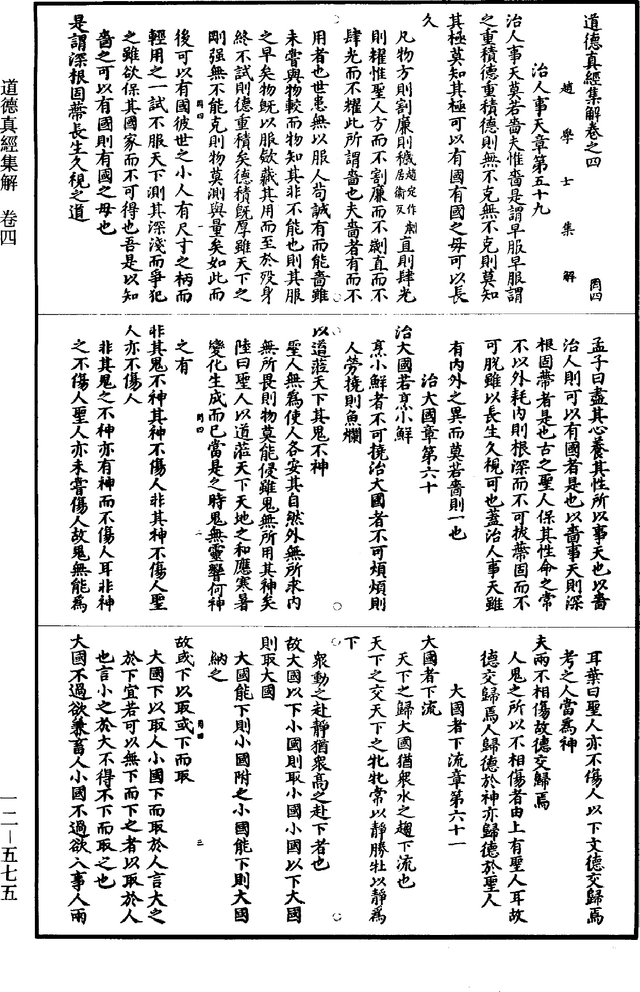 道德真經集解卷之四 罔四
趙學士集解
治人事天章第五十九
治人事天莫若嗇夫惟嗇是謂早服早服謂
之重積德重積德則無不克無不克則莫知
其極莫知其極可以有國有國之母可以長
久
凡物方則割廉則穢趙定作劌居衛反直則肆光
則耀惟聖人方而不割廉而不劌直而不
肆光而不耀此所謂嗇也夫嗇者有而不
用者也世患無以服人苟誠有而能嗇雖
未嘗與物較而物知其非不能也則其服
之早矣物既以服斂藏其用而至於歿身
終不試則德重積矣德積既厚雖天下之
剛強無不能克則物莫測與量矣如此而
罔四 一
後可以有國彼世之小人有尺寸之柄而
輕用之一試不服天下測其深淺而爭犯
之雖欲保其國家而不可得也吾是以知
嗇之可以有國則有國之母也
是謂深根固蔕長生久視之道
孟子曰盡其心養其性所以事天也以嗇
治人則可以有國者是也以嗇事天則深
根固蔕者是也古之聖人保其性命之常
不以外耗內則根深而不可拔蔕固而不
可脫雖以長生久視可也蓋治人事天雖
有內外之異而莫若嗇則一也
治大國章第六十
治大國若烹小鮮
烹小鮮者不可撓治大國者不可煩煩則
人勞撓則魚爛
以道莅天下其鬼不神
聖人無為使人各安其自然外無所求內
無所畏則物莫能侵雖鬼無所用其神矣
陸曰聖人以道莅天下天地之和應寒暑
變化生成而已當是之時鬼無靈響何神
罔四 二
之有
非其鬼不神其神不傷人非其神不傷人聖
人亦不傷人
非其鬼之不神亦有神而不傷人耳非神
之不傷人聖人亦未嘗傷人故鬼無能為
耳葉曰聖人亦不傷人以下文德交歸焉
考之人當為神
夫兩不相傷故德交歸焉
人鬼之所以不相傷者由上有聖人耳故
德交歸焉人歸德於神亦歸德於聖人
大國者下流章第六十一
大國者下流
天下之歸大國猶眾水之趨下流也
天下之交天下之牝牝常以靜勝牡以靜為
下
眾動之赴靜猶眾高之赴下者也
故大國以下小國則取小國小國以下大國
則取大國
大國能下則小國附之小國能下則大國
納之
罔四 三
故或下以取或下而取
大國下以取人小國下而取於人言大之
於下宜若可以無下而下之者以取於人
也言小之於大不得不下而取之也
大國不過欲兼畜人小國不過欲入事人兩
道德真經集解 卷四
一二－五七五